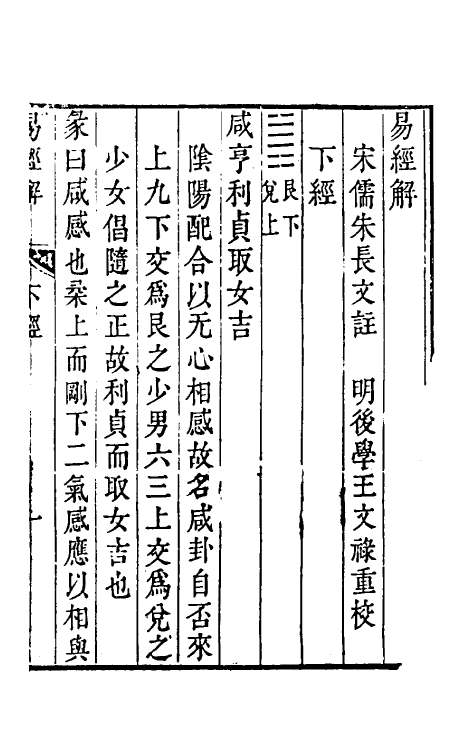 易經解
宋儒朱長文註　明後學王文祿重校
下經
䷞艮下兌上
咸亨利貞取女吉
陰陽配合以无心相感故名咸卦自否來
上九下交爲艮之少男六三上交爲兌之
少女倡隨之正故利貞而取女吉也
彖曰咸感也柔上而剛下二氣感應以相與
易經解　下經　一